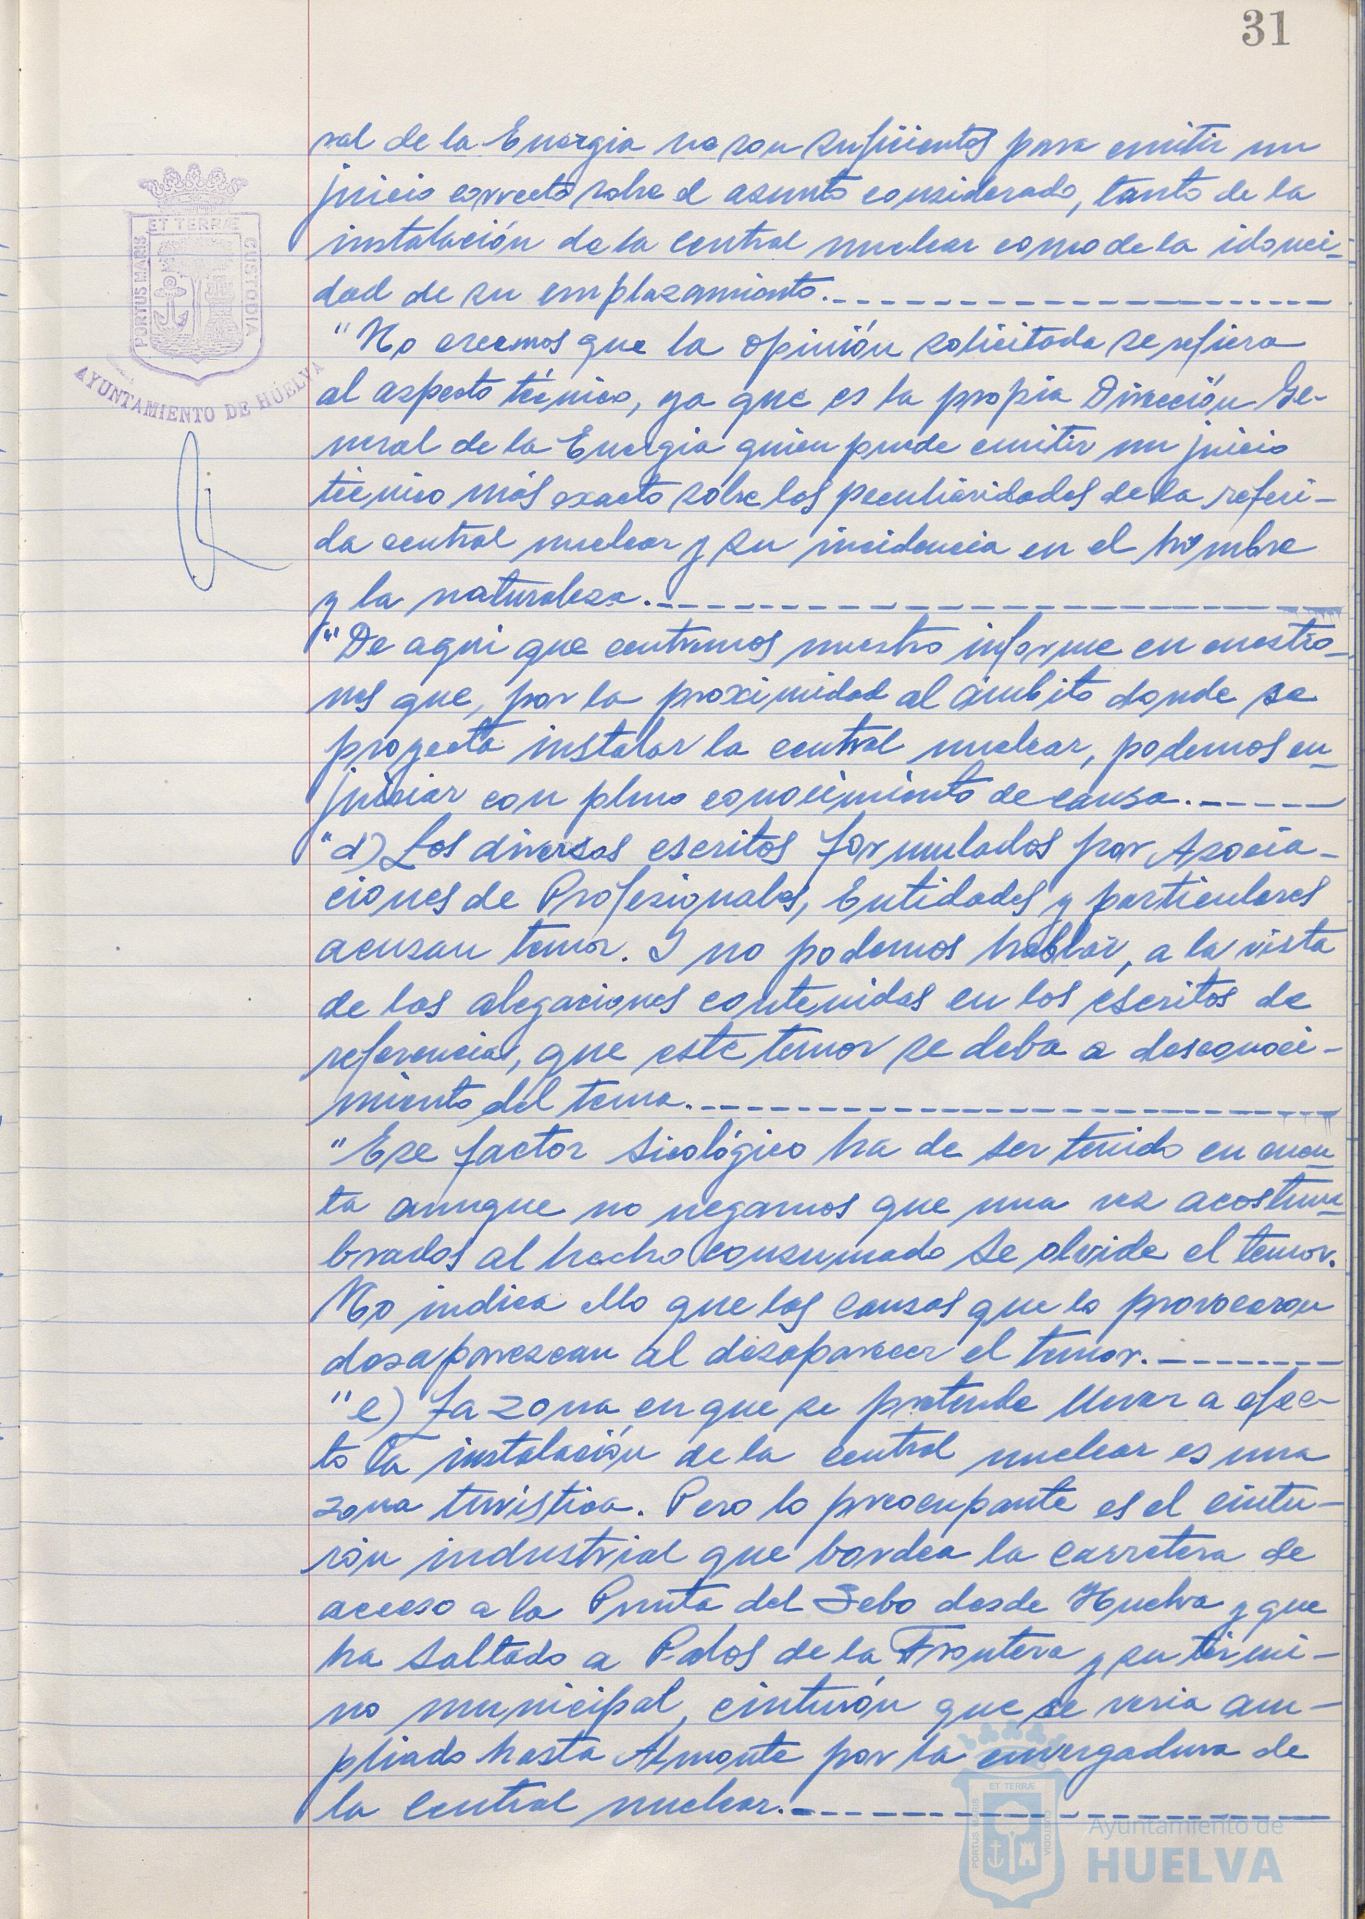 31
ral de la Energia no son suficientes para emitir un
juicio correcto sobre el asunto considerado, tanto de la
instalación de la central nuclear como de la idonei-
dad de su emplazamiento.
"No creemos que la opinión solicitada se refiera
al aspecto técnico, ya que es la propia Dirección Ge-
neral de la Energia quien puede emitir un juicio
técnico más exacto sobre las peculiaridades de la referi-
da central nuclear y su incidencia en el hombre
y la naturaleza.
"De aqui que centremos nuestro informe en cuestio-
nes que, por la proximidad al ámbito donde se
proyecta instalar la central nuclear, podemos en-
juiciar con pleno conocimiento de causa.
"d) Los diversos escritos formulados por Asocia-
ciones de Profesionales, Entidades y particulares
acusan temor. I no podemos hablar, a la vista
de las alegaciones contenidas en los escritos de
referencias, que este temor se deba a desconoci-
miento del tema.
"Ese factor sicológico ha de ser tenido en cuen-
ta aunque no negamos que una vez acostum-
brados al hecho consumado se olvide el temor.
No indica ello que las causas que lo provocaron
desaparezcan al desaparecer el temor.
"e) La zona en que se pretende llevar a efec-
to la instalación de la central nuclear es una
zona turistica. Pero lo preocupante es el cintu-
rón industrial que bordea la carretera de
acceso a la Punta del Sebo desde Huelva y que
ha saltado a Palos de la Frontera y su térmi-
no municipal, cinturón que se veria am-
pliado hasta Almonte por la envergadura de
la central nuclear.
PORTUS MARIS ET TERRÆ CUSTODIA
AYUNTAMIENTO DE HUELVA
PORTUS MARIS ET TERRÆ CUSTODIA
Ayuntamiento de
HUELVA